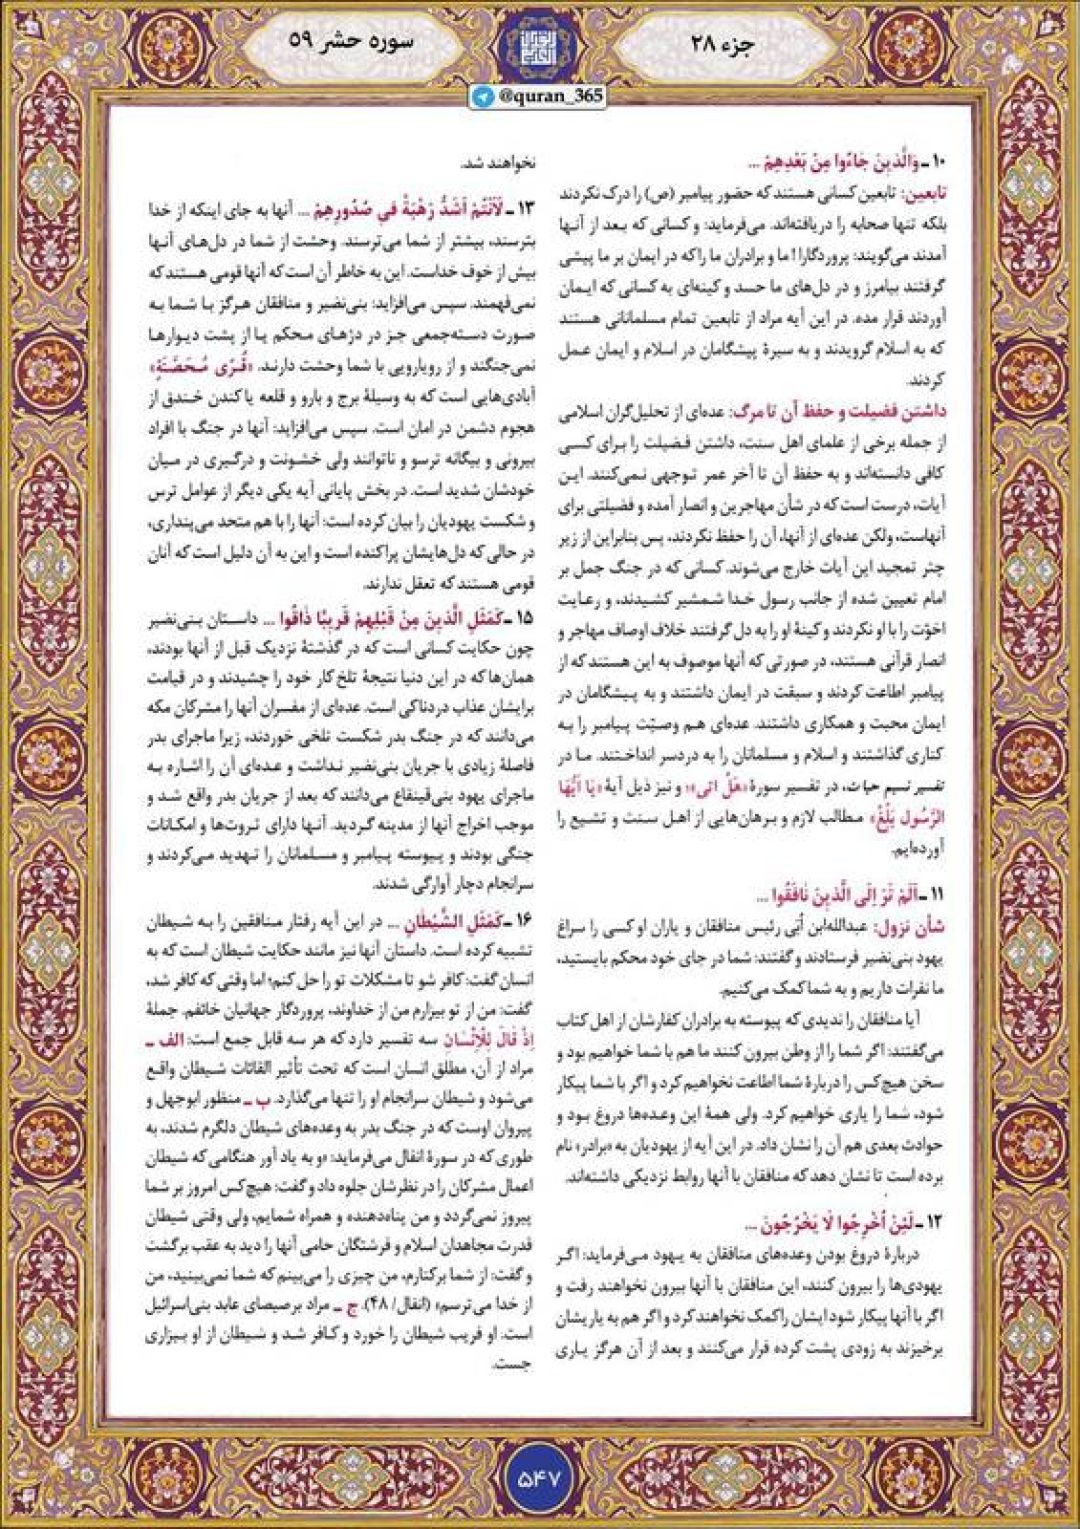 جزء ۲۸
سوره حشر ۵۹
@quran_365
۱۰ ـ وَالَّذِينَ جَاءُوا مِنْ بَعْدِهِمْ ...
تابعین: تابعین کسانی هستند که حضور پیامبر (ص) را درک نکردند
بلکه تنها صحابه را دریافته‌اند. می‌فرماید: و کسانی که بعد از آنها
آمدند می‌گویند: پروردگارا! ما و برادران ما را که در ایمان بر ما پیشی
گرفتند بیامرز و در دل‌های ما حسد و کینه‌ای به کسانی که ایمان
آوردند قرار مده. در این آیه مراد از تابعین تمام مسلمانانی هستند
که به اسلام گرویدند و به سیرهٔ پیشگامان در اسلام و ایمان عمل
کردند.
داشتن فضیلت و حفظ آن تا مرگ: عده‌ای از تحلیل‌گران اسلامی
از جمله برخی از علمای اهل سنت، داشتن فضیلت را برای کسی
کافی دانسته‌اند و به حفظ آن تا آخر عمر توجهی نمی‌کنند. این
آیات، درست است که در شأن مهاجرین و انصار آمده و فضیلتی برای
آنهاست، ولکن عده‌ای از آنها، آن را حفظ نکردند، پس بنابراین از زیر
چتر تمجید این آیات خارج می‌شوند. کسانی که در جنگ جمل بر
امام تعیین شده از جانب رسول خدا شمشیر کشیدند، و رعایت
اخوّت را با او نکردند و کینهٔ او را به دل گرفتند خلاف اوصاف مهاجر و
انصار قرآنی هستند، در صورتی که آنها موصوف به این هستند که از
پیامبر اطاعت کردند و سبقت در ایمان داشتند و به پیشگامان در
ایمان محبت و همکاری داشتند. عده‌ای هم وصیّت پیامبر را به
کناری گذاشتند و اسلام و مسلمانان را به دردسر انداختند. ما در
تفسیر نسیم حیات، در تفسیر سورهٔ «هَلْ اَتی»؛ و نیز ذیل آیهٔ «یَا اَیُّهَا
الرَّسُول بَلِّغْ» مطالب لازم و برهان‌هایی از اهل سنت و تشیع را
آورده‌ایم.
۱۱ ـ اَلَمْ تَرَ اِلَی الَّذِینَ نَافَقُوا ...
شأن نزول: عبدالله‌ابن اُبّی رئیس منافقان و یاران او کسی را سراغ
یهود بنی‌نضیر فرستادند و گفتند: شما در جای خود محکم بایستید،
ما نفرات داریم و به شما کمک می‌کنیم.
آیا منافقان را ندیدی که پیوسته به برادران کفارشان از اهل کتاب
می‌گفتند: اگر شما را از وطن بیرون کنند ما هم با شما خواهیم بود و
سخن هیچ‌کس را دربارهٔ شما اطاعت نخواهیم کرد و اگر با شما پیکار
شود، شما را یاری خواهیم کرد. ولی همهٔ این وعده‌ها دروغ بود و
حوادث بعدی هم آن را نشان داد. در این آیه از یهودیان به «برادر» نام
برده است تا نشان دهد که منافقان با آنها روابط نزدیکی داشته‌اند.
۱۲ ـ لَئِنْ اُخْرِجُوا لَا یَخْرُجُونَ ...
دربارهٔ دروغ بودن وعده‌های منافقان به یهود می‌فرماید: اگر
یهودی‌ها را بیرون کنند، این منافقان با آنها بیرون نخواهند رفت و
اگر با آنها پیکار شود ایشان را کمک نخواهند کرد و اگر هم به یاریشان
برخیزند به زودی پشت کرده فرار می‌کنند و بعد از آن هرگز یاری
نخواهند شد.
۱۳ ـ لَاَنْتُمْ اَشَدُّ رَهْبَةً فِی صُدُورِهِمْ ... آنها به جای اینکه از خدا
بترسند، بیشتر از شما می‌ترسند. وحشت از شما در دل‌های آنها
بیش از خوف خداست. این به خاطر آن است که آنها قومی هستند که
نمی‌فهمند. سپس می‌افزاید: بنی‌نضیر و منافقان هرگز با شما به
صورت دسته‌جمعی جز در دژهای محکم یا از پشت دیوارها
نمی‌جنگند و از رویارویی با شما وحشت دارند. «قُرًی مُحَصَّنَةٍ»
آبادی‌هایی است که به وسیلهٔ برج و بارو و قلعه یا کندن خندق از
هجوم دشمن در امان است. سپس می‌افزاید: آنها در جنگ با افراد
بیرونی و بیگانه ترسو و ناتوانند ولی خشونت و درگیری در میان
خودشان شدید است. در بخش پایانی آیه یکی دیگر از عوامل ترس
و شکست یهودیان را بیان کرده است: آنها را با هم متحد می‌پنداری،
در حالی که دل‌هایشان پراکنده است و این به آن دلیل است که آنان
قومی هستند که تعقل ندارند.
۱۵ ـ کَمَثَلِ الَّذِینَ مِنْ قَبْلِهِمْ قَرِیبًا ذَاقُوا ... داستان بنی‌نضیر
چون حکایت کسانی است که در گذشتهٔ نزدیک قبل از آنها بودند،
همان‌ها که در این دنیا نتیجهٔ تلخ کار خود را چشیدند و در قیامت
برایشان عذاب دردناکی است. عده‌ای از مفسران آنها را مشرکان مکه
می‌دانند که در جنگ بدر شکست تلخی خوردند، زیرا ماجرای بدر
فاصلهٔ زیادی با جریان بنی‌نضیر نداشت و عده‌ای آن را اشاره به
ماجرای یهود بنی‌قینقاع می‌دانند که بعد از جریان بدر واقع شد و
موجب اخراج آنها از مدینه گردید. آنها دارای ثروت‌ها و امکانات
جنگی بودند و پیوسته پیامبر و مسلمانان را تهدید می‌کردند و
سرانجام دچار آوارگی شدند.
۱۶ ـ کَمَثَلِ الشَّیْطَانِ ... در این آیه رفتار منافقین را به شیطان
تشبیه کرده است. داستان آنها نیز مانند حکایت شیطان است که به
انسان گفت: کافر شو تا مشکلات تو را حل کنم؛ اما وقتی که کافر شد،
گفت: من از تو بیزارم من از خداوند، پروردگار جهانیان خائفم. جملهٔ
اِذْ قَالَ لِلْاِنْسَانِ سه تفسیر دارد که هر سه قابل جمع است: الف ـ
مراد از آن، مطلق انسان است که تحت تأثیر القائات شیطان واقع
می‌شود و شیطان سرانجام او را تنها می‌گذارد. ب ـ منظور ابوجهل و
پیروان اوست که در جنگ بدر به وعده‌های شیطان دلگرم شدند، به
طوری که در سورهٔ انفال می‌فرماید: «و به یاد آور هنگامی که شیطان
اعمال مشرکان را در نظرشان جلوه داد و گفت: هیچ‌کس امروز بر شما
پیروز نمی‌گردد و من پناه‌دهنده و همراه شمایم، ولی وقتی شیطان
قدرت مجاهدان اسلام و فرشتگان حامی آنها را دید به عقب برگشت
و گفت: از شما برکنارم، من چیزی را می‌بینم که شما نمی‌بینید، من
از خدا می‌ترسم» (انفال/ ۴۸). ج ـ مراد برصیصای عابد بنی‌اسرائیل
است. او فریب شیطان را خورد و کافر شد و شیطان از او بیزاری
جست.
۵۴۷